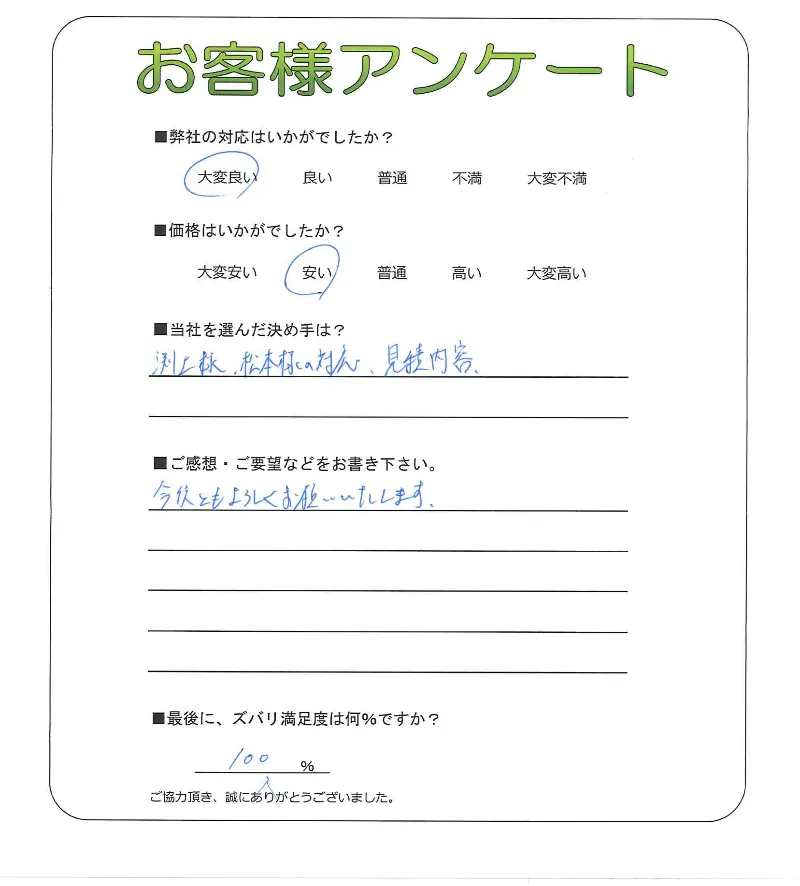 お客様アンケート
■弊社の対応はいかがでしたか？
大変良い 良い 普通 不満 大変不満
■価格はいかがでしたか？
大変安い 安い 普通 高い 大変高い
■当社を選んだ決め手は？
渕上様、松本様の対応、見積内容、
■ご感想・ご要望などをお書き下さい。
今後ともよろしくお願いいたします。
■最後に、ズバリ満足度は何％ですか？
100 %
ご協力頂き、誠にありがとうございました。